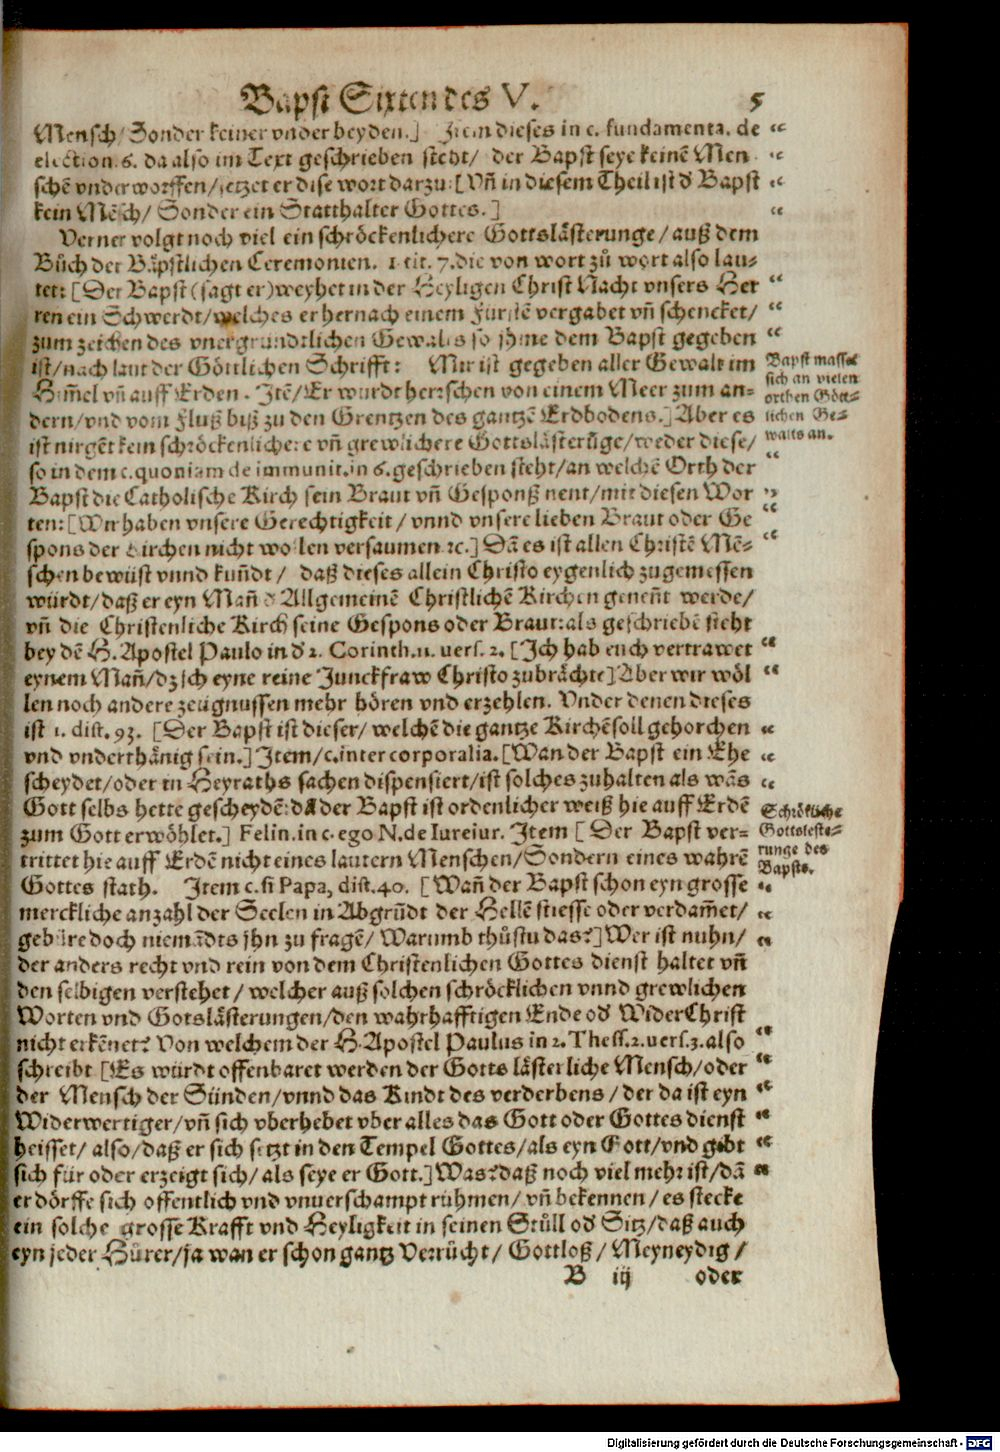 Bapst Sixten des V. 5
Mensch/ Sonder keiner vnder beyden.] Item dieses in c. fundamenta. de
election. 6. da also im Text geschrieben steht/ der Bapst seye keinē Men
schē vnderworffen/ setzet er dise wort darzu: [Vñ in diesem Theil ist d' Bapst
kein Mēsch/ Sonder ein Statthalter Gottes.]
Verner volgt noch viel ein schröckenlichere Gottslästerunge/ auß dem
Bůch der Bäpstlichen Ceremonien. 1. tit. 7. die von wort zů wort also lau-
tet: [Der Bapst (sagt er) weyhet in der Heyligen Christ Nacht vnsers Her
ren ein Schwerdt/ welches er hernach einem Fürstē vergabet vñ schencket/
zum zeichen des vnergründtlichen Gewalts so jhme dem Bapst gegeben
ist/ nach laut der Göttlichen Schrifft: Mir ist gegeben aller Gewalt im
Him̄el vñ auff Erden. Itē/ Er wurdt herrschen von einem Meer zum an-
dern/ vnd vom Fluß biß zu den Grentzen des gantzē Erdbodens.] Aber es
ist nirgēt kein schröckenlichere vñ grewlichere Gottslästerūge/ weder diese/
so in dem c. quoniam de immunit. in 6. geschrieben steht/ an welchē Orth der
Bapst die Catholische Kirch sein Braut vñ Gesponß nent/ mit diesen Wor
ten: [Wir haben vnsere Gerechtigkeit/ vnnd vnsere lieben Braut oder Ge
spons der Kirchen nicht wollen versaumen ꝛc.] Dā es ist allen Christē Mē-
schen bewüst vnnd kuñdt/ daß dieses allein Christo eygenlich zugemessen
würdt/ daß er eyn Mañ d' Allgemeinē Christlichē Kirchen geneñt werde/
vñ die Christenliche Kirch seine Gespons oder Braut: als geschriebē steht
bey dē H. Apostel Paulo in d' 2. Corinth. 11. vers. 2. [Ich hab euch vertrawet
eynem Mañ/ dz ich eyne reine Junckfraw Christo zubrächte] Aber wir wöl
len noch andere zeugnussen mehr hören vnd erzehlen. Vnder denen dieses
ist 1. dist. 93. [Der Bapst ist dieser/ welchē die gantze Kirchē soll gehorchen
vnd vnderthänig sein.] Item/ c. inter corporalia. [Wan der Bapst ein Ehe
scheydet/ oder in Heyraths sachen dispensiert/ ist solches zuhalten als wäs
Gott selbs hette gescheydē: dā der Bapst ist ordenlicher weiß hie auff Erdē
zum Gott erwöhlet.] Felin. in c. ego N. de Iureiur. Item [Der Bapst ver-
trittet hie auff Erdē nicht eines lautern Menschen/ Sondern eines wahrē
Gottes stath. Item c. si Papa, dist. 40. [Wañ der Bapst schon eyn grosse
merckliche anzahl der Seelen in Abgrūdt der Hellē stiesse oder verdam̄et/
gebüre doch niemādts jhn zu fragē/ Warumb thůstu das?] Wer ist nuhn/
der anders recht vnd rein von dem Christenlichen Gottes dienst haltet vñ
den selbigen verstehet/ welcher auß solchen schröcklichen vnnd grewlichen
Worten vnd Gotslästerungen/ den wahrhafftigen Ende od' WiderChrist
nicht erkēnet? Von welchem der H. Apostel Paulus in 2. Thess. 2. vers. 3. also
schreibt [Es würdt offenbaret werden der Gotts lästerliche Mensch/ oder
der Mensch der Sünden/ vnnd das Kindt des verderbens/ der da ist eyn
Widerwertiger/ vñ sich vberhebet vber alles das Gott oder Gottes dienst
heisset/ also/ daß er sich setzt in den Tempel Gottes/ als eyn Gott/ vnd gibt
sich für oder erzeigt sich/ als seye er Gott.] Was? daß noch viel mehr ist/ dā
er dörffe sich offentlich vnd vnuerschampt rühmen/ vñ bekennen/ es stecke
ein solche grosse Krafft vnd Heyligkeit in seinen Stůll od' Sitz/ daß auch
eyn jeder Hůrer/ ja wan er schon gantz Verrůcht/ Gottloß/ Meyneydig/
B iij oder
Bapst masset
sich an vielen
orthen Gött-
lichen Ge-
walts an.
Schröckliche
Gottsleste-
runge des
Bapsts.
Digitalisierung gefördert durch die Deutsche Forschungsgemeinschaft - DFG